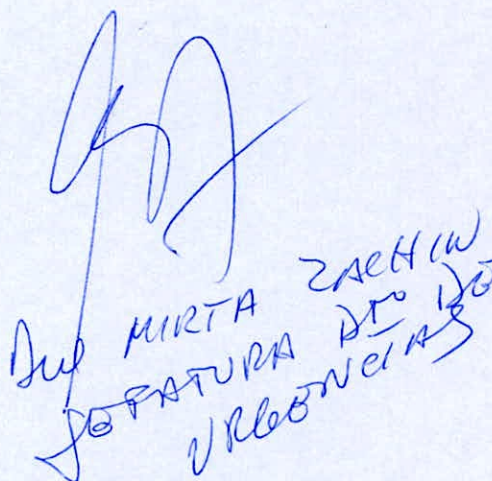 MIRTA ZACHIN
JEFATURA DTO DE
URGENCIAS